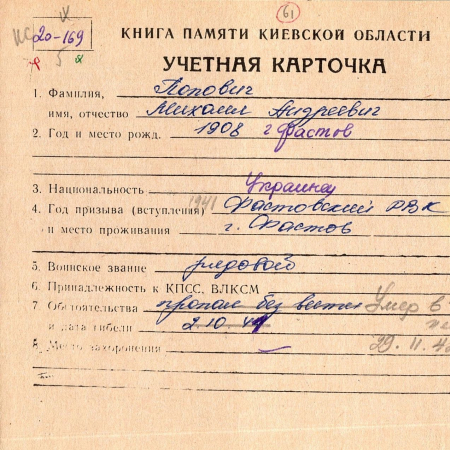 61
20-169
КНИГА ПАМЯТИ КИЕВСКОЙ ОБЛАСТИ
УЧЕТНАЯ КАРТОЧКА
1. Фамилия, Попович
имя, отчество Михаил Андреевич
2. Год и место рожд. 1908 г Фастов
3. Национальность Украинец
4. Год призыва (вступления) 1941 Фастовский РВК
и место проживания г. Фастов
5. Воинское звание рядовой
6. Принадлежность к КПСС, ВЛКСМ
7. Обстоятельства пропал без вести Умер в
и дата гибели 2.10.41
8. Место захоронения 29.11.4